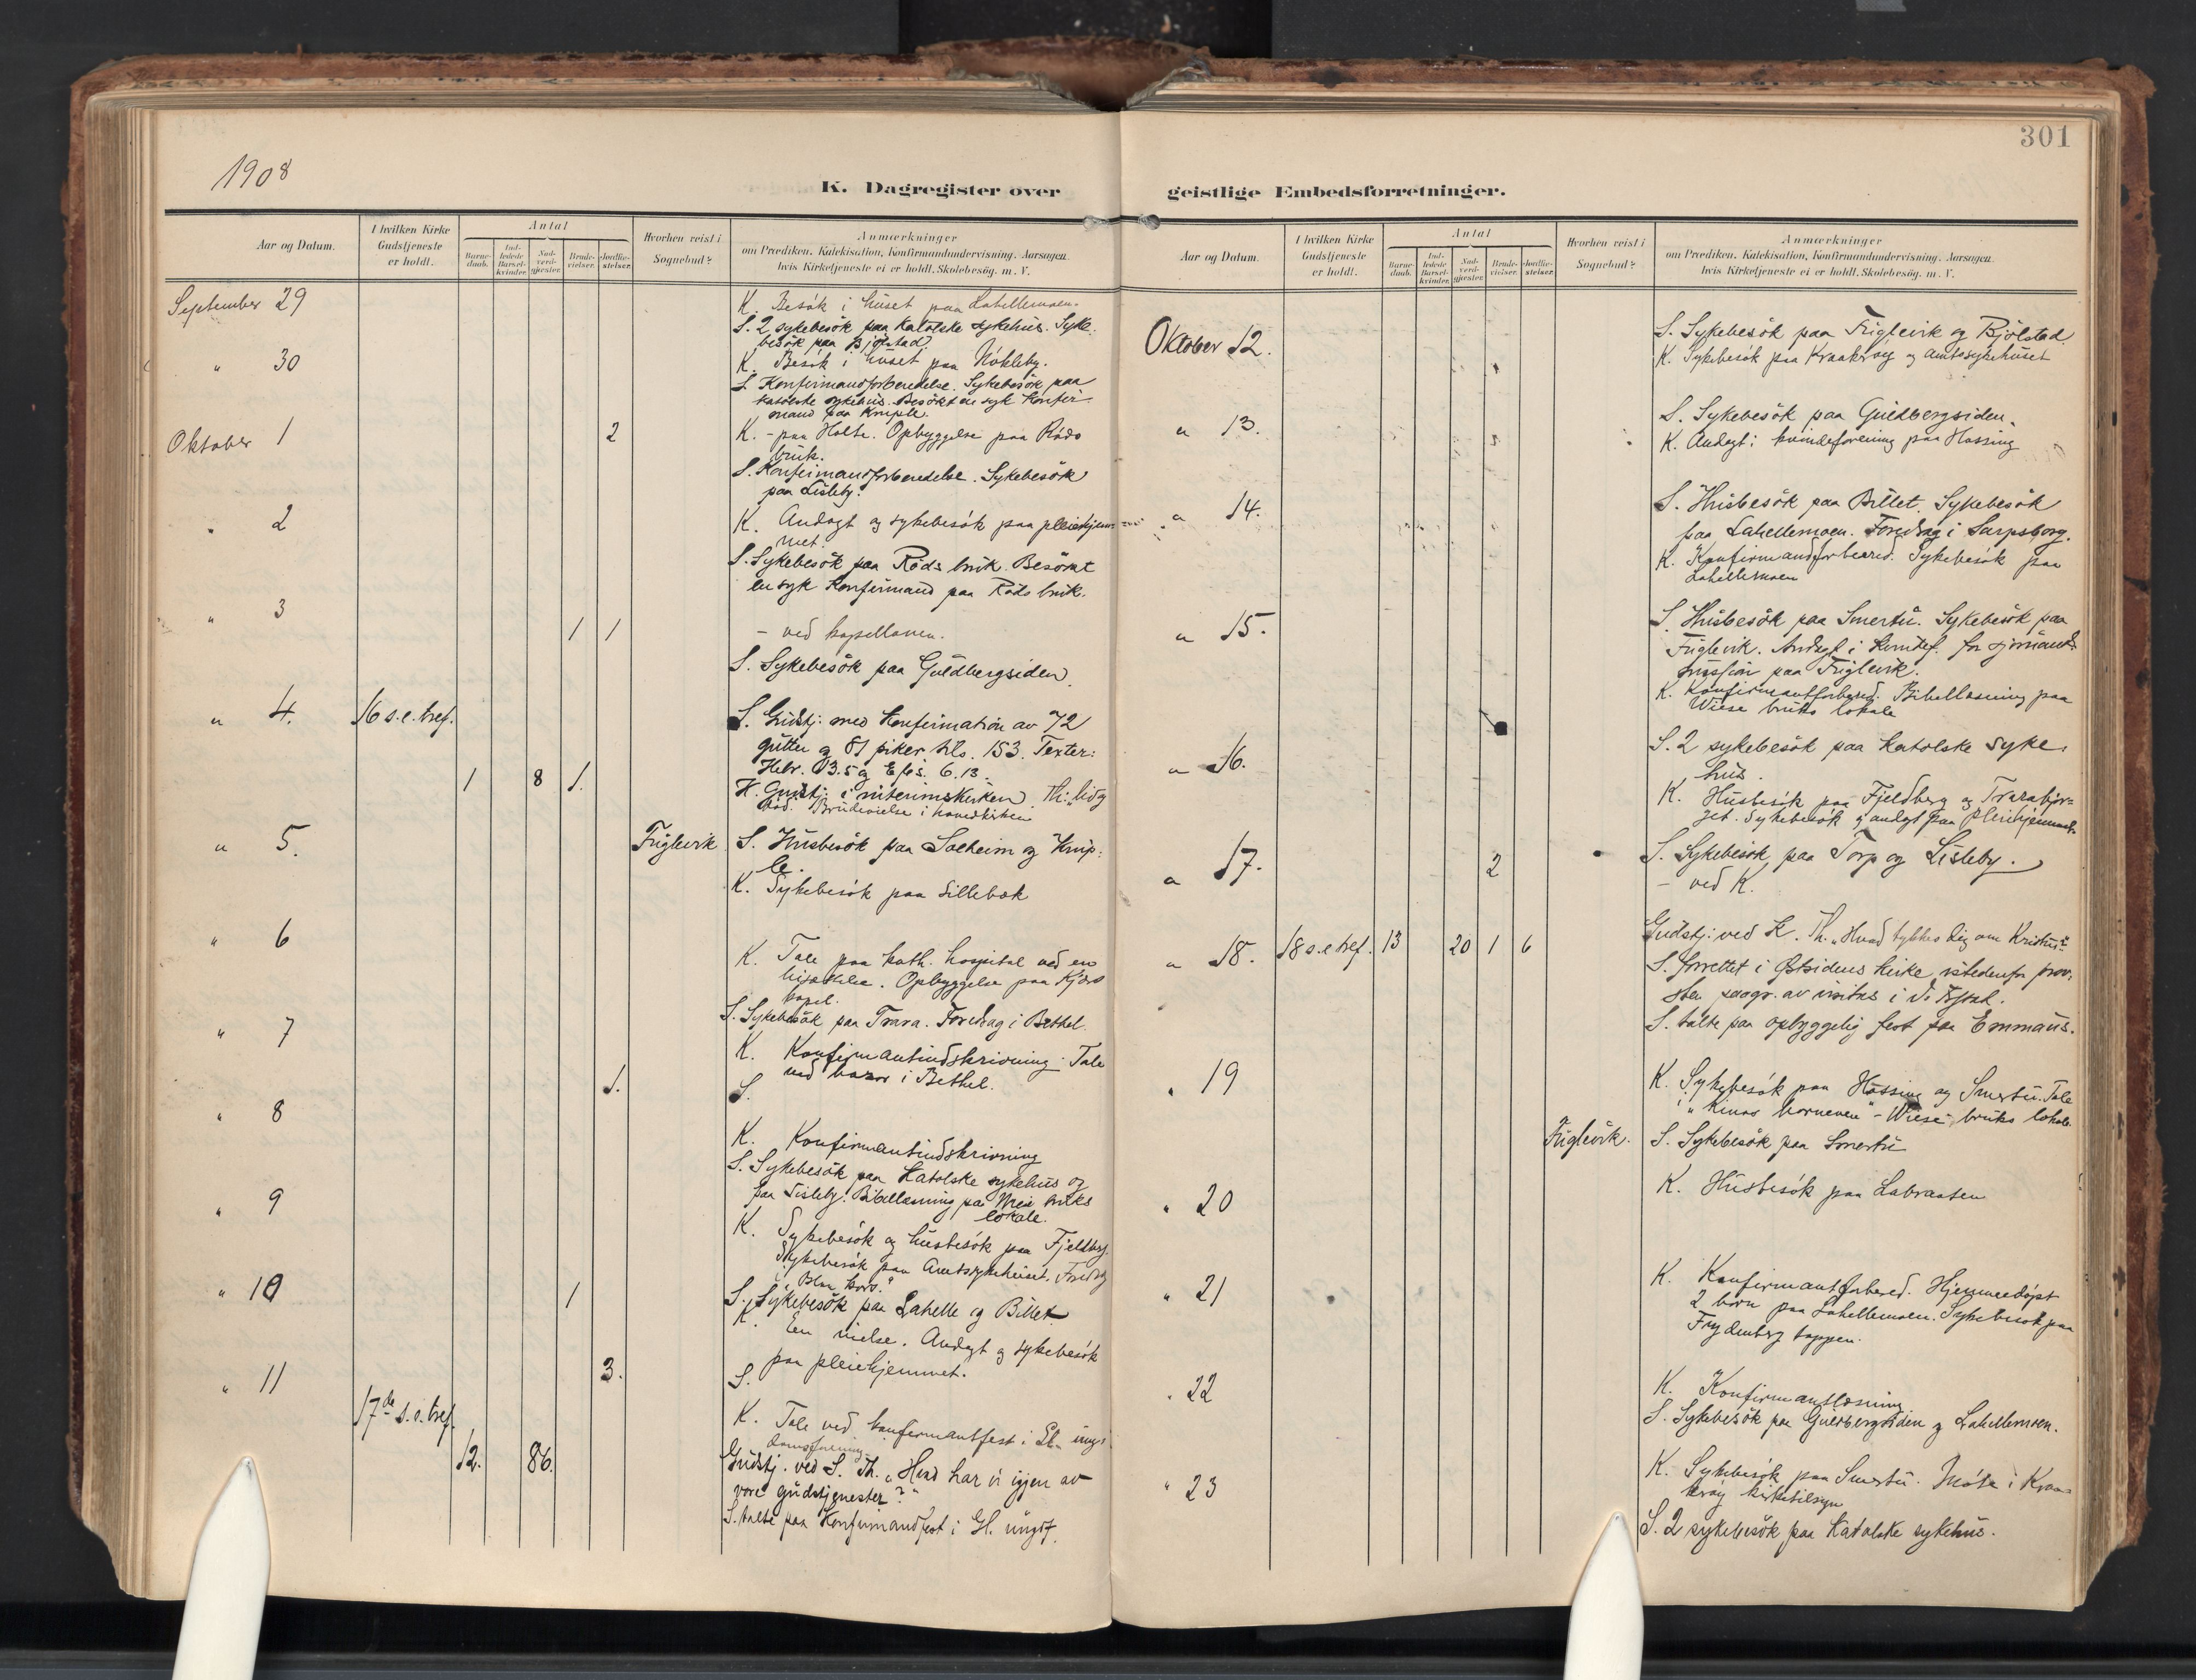 301
1908
K. Dagregister over
geistlige Embedsforretninger.
Aar og Datum.
I hvilken Kirke Gudstjeneste er holdt.
Antal
Barne-daab.
Ind-ledede Barsel-kvinder.
Nad-verd-gjester.
Brude-vielser.
Jordfæ-stelser.
Hvorhen reist i Sognebud?
Anmærkninger
om Prædiken, Katekisation, Konfirmandundervisning, Aarsagen,
hvis Kirketjeneste ei er holdt, Skolebesøg, m. V.
September 29
K. Besök i huset paa Lahellemoen.
S. 2 sykebesök paa Katolske sykehus. Syke-
besök paa Bjölstad.
" 30
K. Besök i huset paa Nökleby.
S. Konfirmandforberedelse. Sykebesök paa
katolske sykehus. Besökt en syk Konfir-
mand paa Kniple.
Oktober 1
2
K. - paa Holte. Opbyggelse paa Röds
bruk.
S. Konfirmandforberedelse. Sykebesök
paa Lisleby.
" 2
K. Andagt og sykebesök paa pleiehjem-
met.
S. Sykebesök paa Röds bruk. Besökt
en syk Konfirmand paa Röds bruk.
" 3
1 1
- ved kapellanen.
S. Sykebesök paa Guldbergsiden.
" 4. 16 s.e.tref.
S. Gudstj: med Konfirmation av 72
gutter og 81 piker tils. 153. Texter:
Hebr. 13.5 og Efes. 6.13.
1 8 1.
K. Gudstj: i interimskirken. Th:
Brudevielse i hovedkirken
" 5.
Fuglevik
S. Husbesök paa Solheim og Knip-
le.
K. Sykebesök paa Lillebæk
" 6
K. Tale paa kath. hospital ved en
bisættelse. Opbyggelse paa Kjöls
kapel.
S. Sykebesök paa Trara. Foredrag i Bethel.
" 7
K. Konfirmantindskrivning. Tale
ved bazar i Bethel.
1.
S.
" 8
K. Konfirmantindskrivning
S. Sykebesök paa Katolske sykehus og
paa Lisleby. Bibellæsning paa Wiese bruks
lokale.
" 9
K. Sykebesök og husbesök paa Fjeldberg.
Sykebesök paa Amtssykehuset. Foredrag
i "Blaa kors."
" 10
1
S. Sykebesök paa Lahelle og Billet
K. En vielse. Andagt og sykebesök
paa pleiehjemmet.
3.
S.
" 11
17de s.e.tref.
K. Tale ved konfirmantfest i Gl. ung-
domsforening
12. 86.
Gudstj. ved S. Th. "Hvad har vi igjen av
vore gudstjenester?"
S. talte paa Konfirmandfest i Gl. ungdf.
Aar og Datum.
I hvilken Kirke Gudstjeneste er holdt.
Antal
Barne-daab.
Ind-ledede Barsel-kvinder.
Nad-verd-gjester.
Brude-vielser.
Jordfæ-stelser.
Hvorhen reist i Sognebud?
Anmærkninger
om Prædiken, Katekisation, Konfirmandundervisning, Aarsagen,
hvis Kirketjeneste ei er holdt, Skolebesøg, m. V.
Oktober 12.
S. Sykebesök paa Fuglevik og Bjölstad.
K. Sykebesök paa Kraakeröy og Amtssykehuset
" 13.
S. Sykebesök paa Guldbergsiden.
K. Andagt i kvindeforening paa Hassing
" 14.
S. Husbesök paa Billet. Sykebesök
paa Lahellemoen. Foredrag i Sarpsborg.
K. Konfirmandforbered. Sykebesök paa
Lahellemoen
" 15.
S. Husbesök paa Smertu. Sykebesök paa
Fuglevik. Andagt i Kvindef. for sjömands-
mission paa Fuglevik.
K. Konfirmantforbered. Bibellæsning paa
Wiese bruks lokale
" 16.
S. 2 sykebesök paa Katolske syke-
hus.
K. Husbesök paa Fjeldberg og Trarabjer-
get. Sykebesök og andagt paa pleiehjemmet.
" 17.
2
S. Sykebesök paa Torp og Lisleby.
- ved K.
" 18. 18 s.e.tref. 13 20 1 6
Gudstj: ved K. Th. "Hvad tykkes Dig om Kristus?"
S. forrettet i Østsidens kirke istedenfor prov-
sten paagr. av visitas i
S. talte paa opbyggelig fest paa Emmaus.
" 19
K. Sykebesök paa Hassing og Smertu. Tale
i "Kinas kornever" - Wiese bruks lokale
Fuglevik.
S. Sykebesök paa Smertu
" 20
K. Husbesök paa Labraaten
" 21
K. Konfirmantforbered. Hjemmedöpt
2 börn paa Lahellemoen. Sykebesök paa
Frydenberg toppen.
" 22
K. Konfirmantlæsning
S. Sykebesök paa Guldbergsiden og Lahellemoen.
" 23
K. Sykebesök paa Smertu. Möte i Kraa-
keröy kirketilsyn
S. 2 sykebesök paa Katolske sykehus.